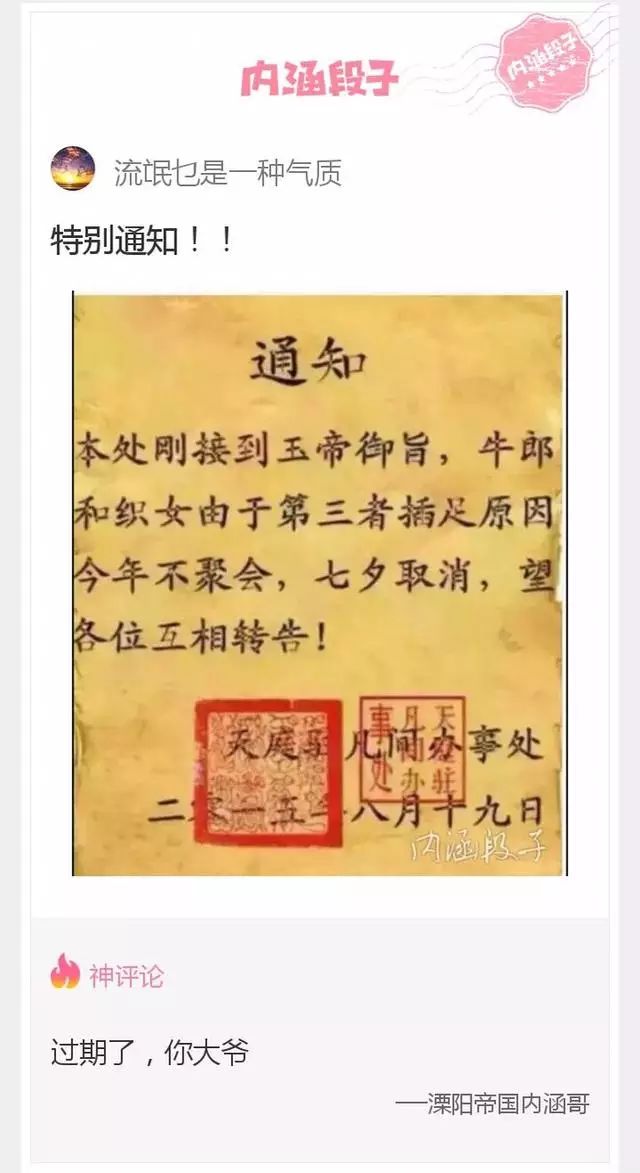 内涵段子
内涵段子
流氓乜是一种气质
特别通知！！
通知
本处刚接到玉帝御旨，牛郎
和织女由于第三者插足原因
今年不聚会，七夕取消，望
各位互相转告！
天庭驻凡间办事处
天庭驻
凡间办
事处
二零一五年八月十九日
内涵段子
神评论
过期了，你大爷
──溧阳帝国内涵哥